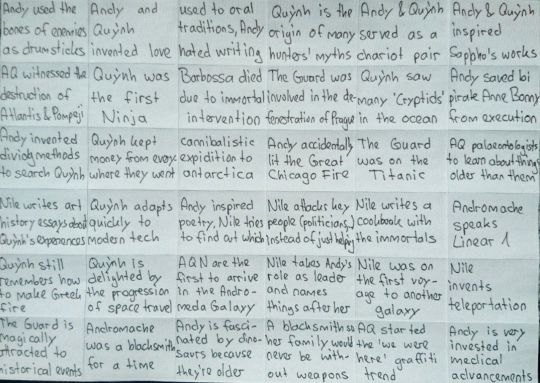 Andy used the
bones of enemies
as drumsticks
Andy and
Quỳnh
invented love
used to oral
traditions, Andy
hated writing
Quỳnh is the
origin of many
hunters' myths
Andy & Quỳnh
served as a
chariot pair
Andy & Quỳnh
inspired
Sappho's works
AQ witnessed the
destruction of
Atlantis & Pompeji
Quỳnh was
the first
Ninja
Barbossa died
due to immortal
intervention
The Guard was
involved in the de-
fenestration of Prague
Quỳnh saw
many 'Cryptids'
in the ocean
Andy saved bi
pirate Anne Bonny
from execution
Andy invented
diving methods
to search Quỳnh
Quỳnh kept
money from every-
where they went
cannibalistic
expidition to
antarctica
Andy accidentally
lit the Great
Chicago Fire
The Guard
was on the
Titanic
AQ palaeontologists
to learn about things
older than them
Nile writes art
history essays about
Quỳnh's experiences
Quỳnh adapts
quickly to
modern tech
Andy inspired
poetry, Nile tries
to find out which
Nile attacks key
people (politicians,)
instead of just helping
Nile writes a
cookbook with
the immortals
Andromache
speaks
Linear A
Quỳnh still
remembers how
to make Greek
fire
Quỳnh is
delighted by
the progression
of space travel
AQN are the
first to arrive
in the Andro-
meda Galaxy
Nile takes Andy's
role as leader
and names
things after her
Nile was on
the first voy-
age to another
galaxy
Nile
invents
teleportation
The Guard is
magically
attracted to
historical events
Andromache
was a blacksmith
for a time
Andy is fasci-
nated by dino-
saurs because
they're older
A blacksmith so
her family would
never be with-
out weapons
AQ started
the 'we were
here' graffiti
trend
Andy is very
invested in
medical
advancements